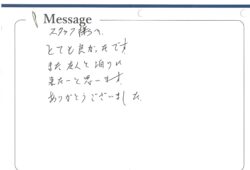 Message
スタッフ様へ
とても良かったです
また友人と泊りに
来たいと思います
ありがとうございました